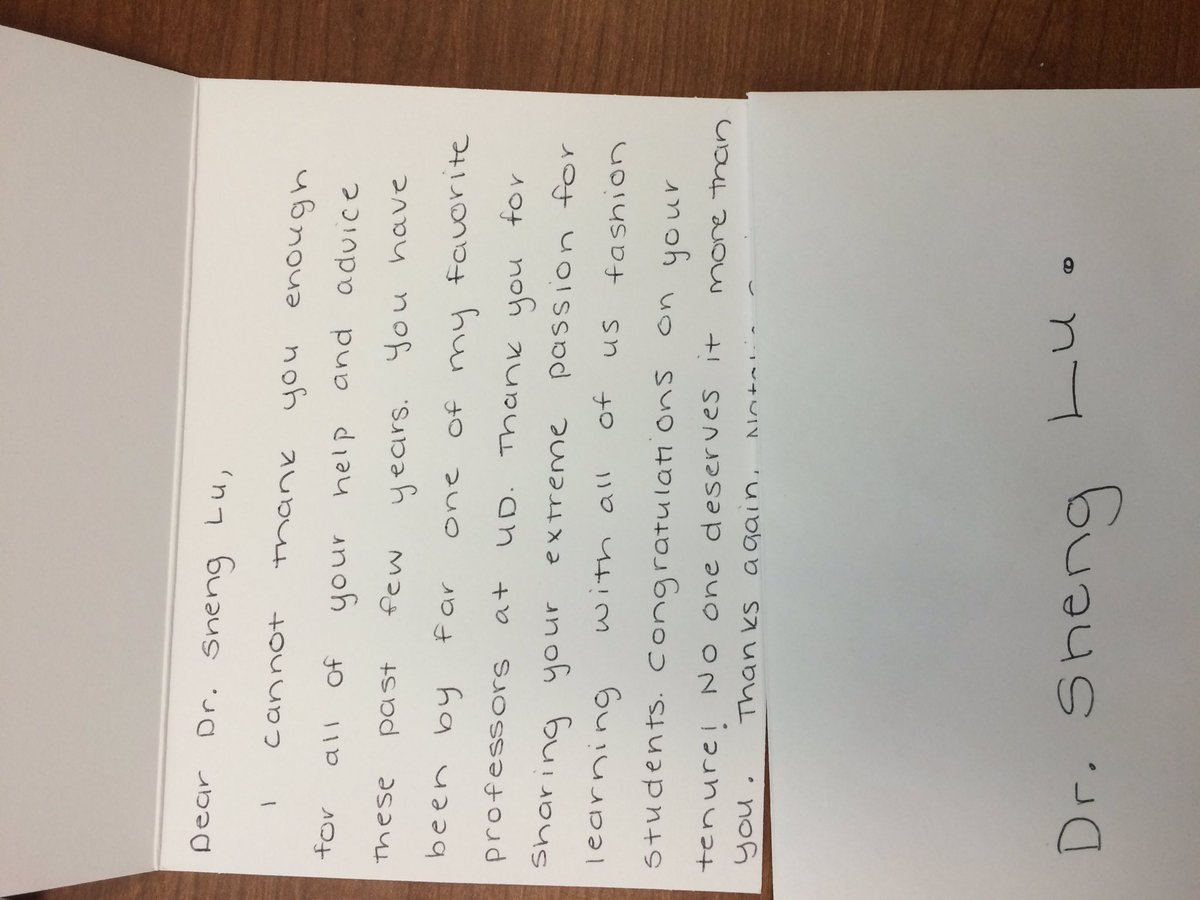 Dear Dr. Sheng Lu,
I cannot thank you enough
for all of your help and advice
these past few years. you have
been by far one of my favorite
professors at UD. Thank you for
sharing your extreme passion for
learning with all of us fashion
students. Congratulations on your
tenure! No one deserves it more than
you. Thanks again,
Dr. Sheng Lu.